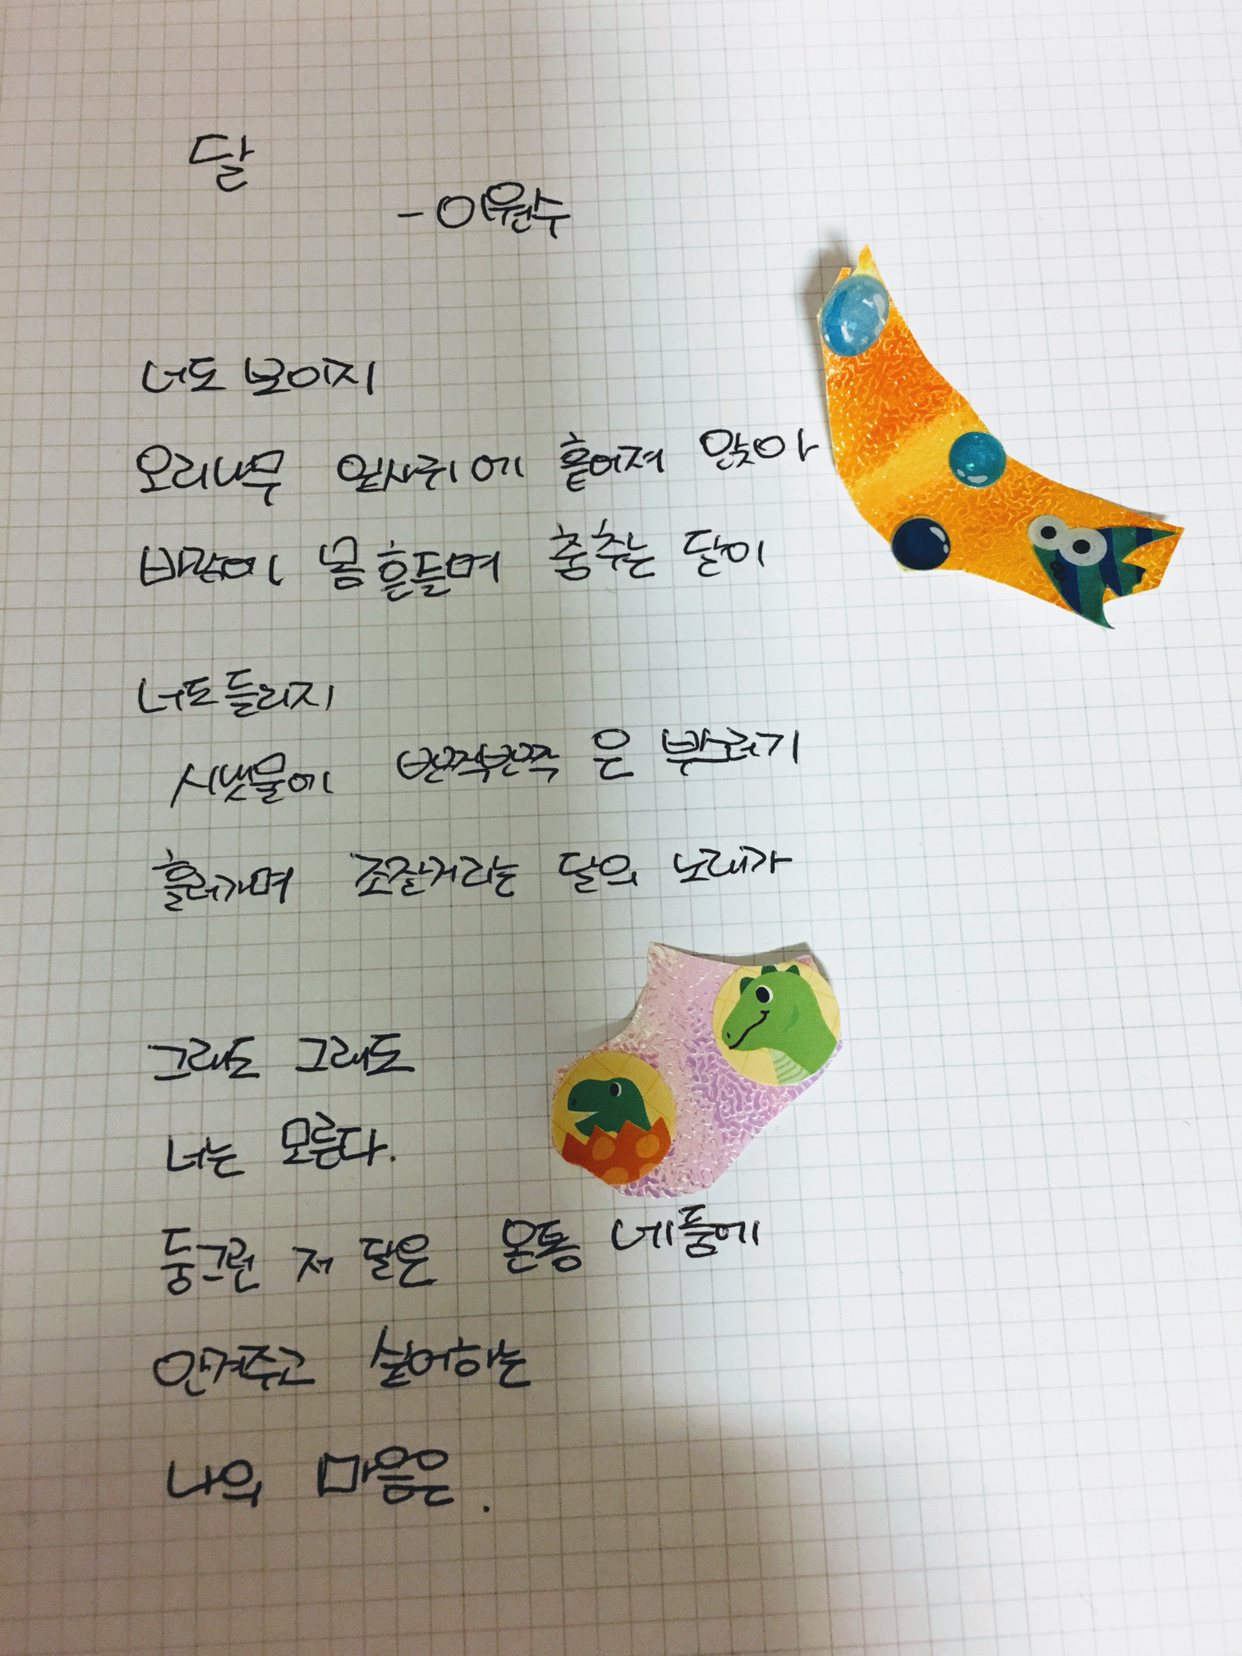 달
- 이원수
너도 보이지
오리나무 잎사귀에 흩어져 앉아
바람에 몸 흔들며 춤추는 달이
너도 들리지
시냇물에 반짝반짝 은 부스러기
흘러가며 조잘거리는 달의 노래가
그래도 그래도
너는 모른다.
둥그런 저 달은 온통 네 품에
안겨주고 싶어하는
나의 마음은.